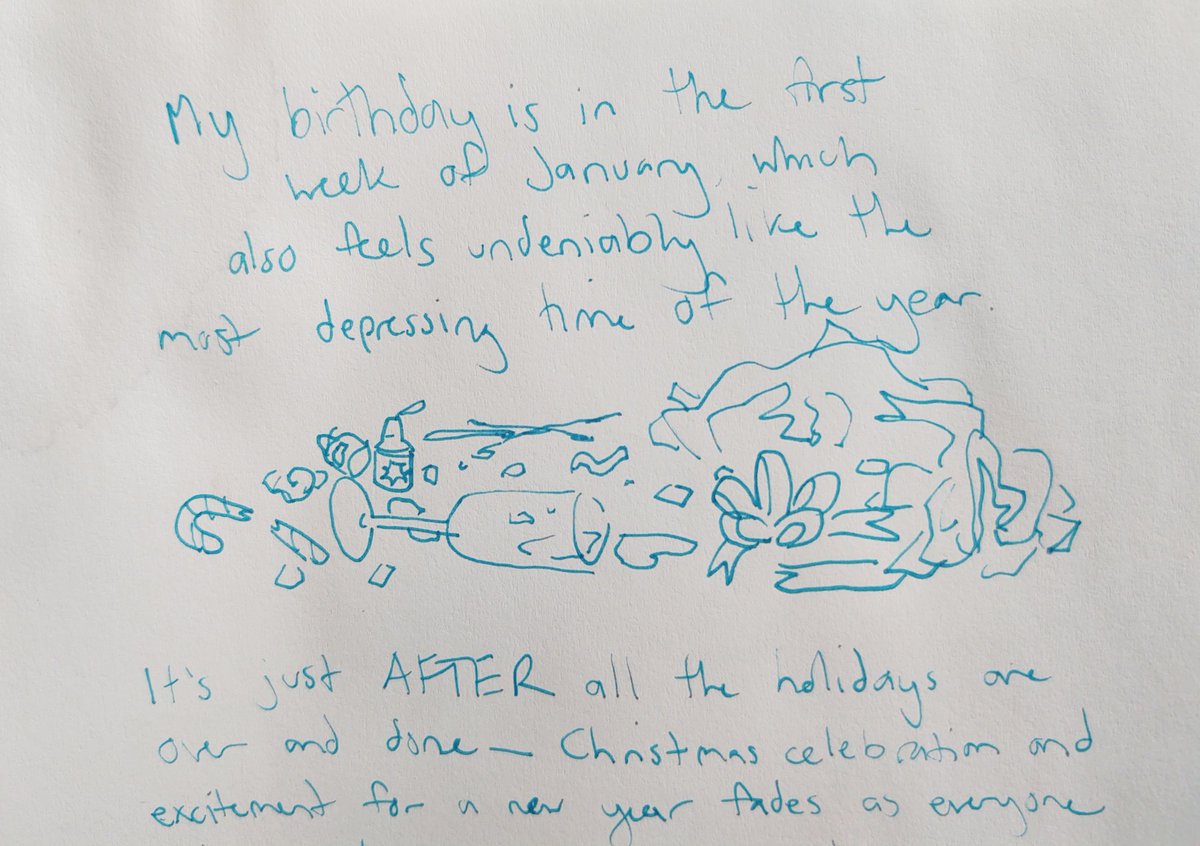 My birthday is in the first
week of January, which
also feels undeniably like the
most depressing time of the year.
It's just AFTER all the holidays are
over and done — Christmas celebration and
excitement for a new year fades as everyone